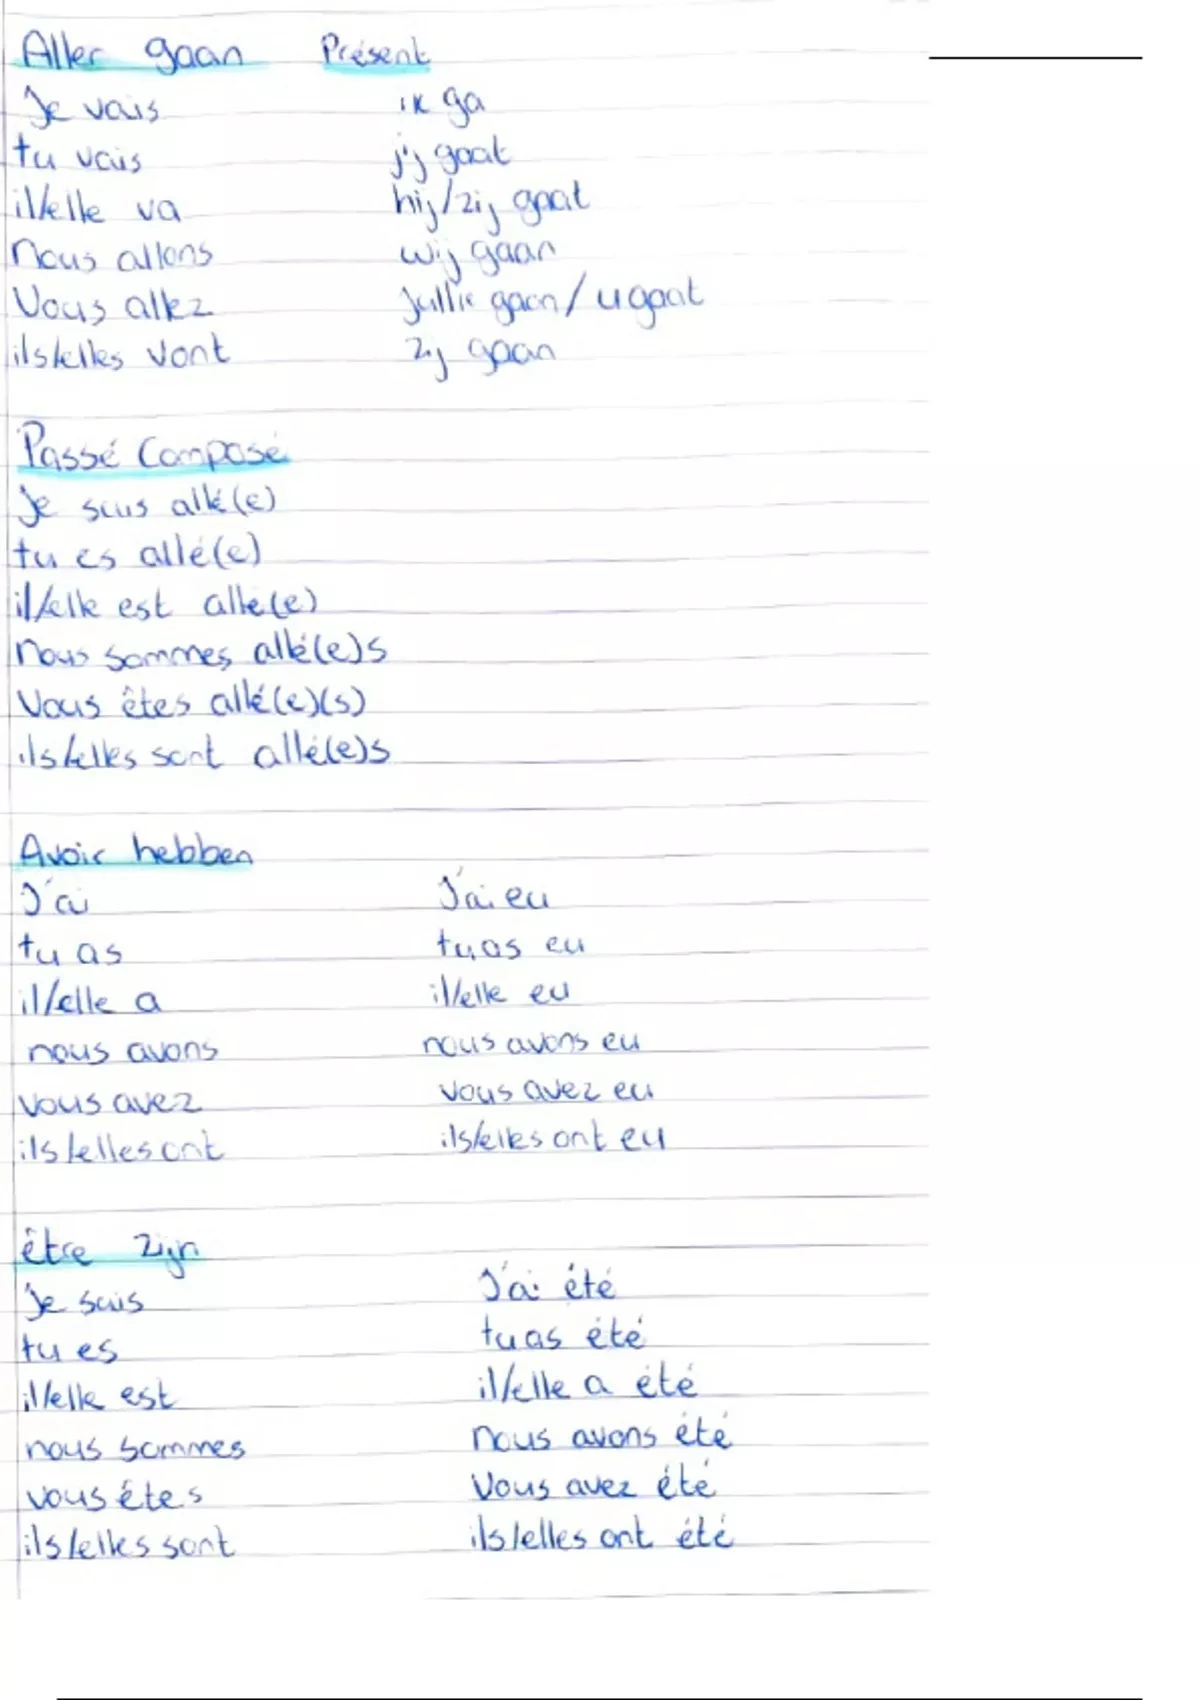 Aller gaan Présent
Je vais ik ga
tu vais jij gaat
il/elle va hij/zij gaat
nous allons wij gaan
Vous allez Jullie gaan/u gaat
ils/elles vont zij gaan
Passé Composé
je suis allé(e)
tu es allé(e)
il/elle est allé(e)
nous sommes allé(e)s
Vous êtes allé(e)(s)
ils/elles sont allé(e)s
Avoir hebben
J'ai J'ai eu
tu as tu as eu
il/elle a il/elle eu
nous avons nous avons eu
vous avez vous avez eu
ils/elles ont ils/elles ont eu
être zijn
Je suis J'ai été
tu es tu as été
il/elle est il/elle a été
nous sommes nous avons été
vous êtes Vous avez été
ils/elles sont ils/elles ont été